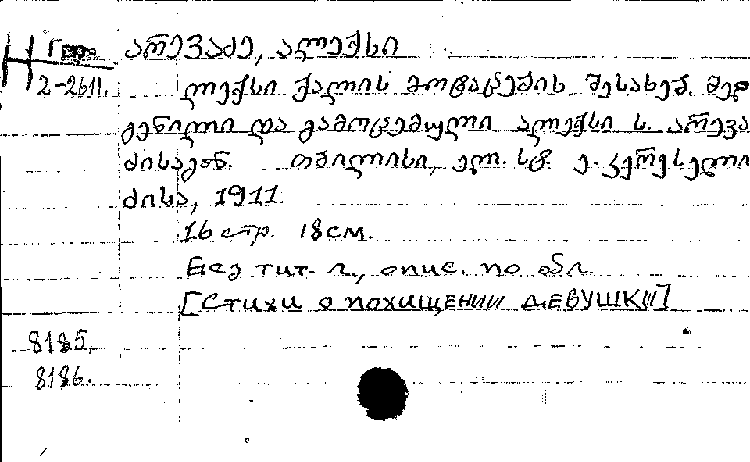 არევაძე, ალექსი
2-2611.
ლექსი ქალის მოტაცების შესახებ. შედ
გენილი და გამოცემული ალექსი ს. არევა
ძისაგან. თბილისი, ელ. სტ. ე. კერესელი
ძისა, 1911
16 стр. 18 см.
Без тит. л., опис. по обл
[Стихи о похищении девушки]
8185,
8186.